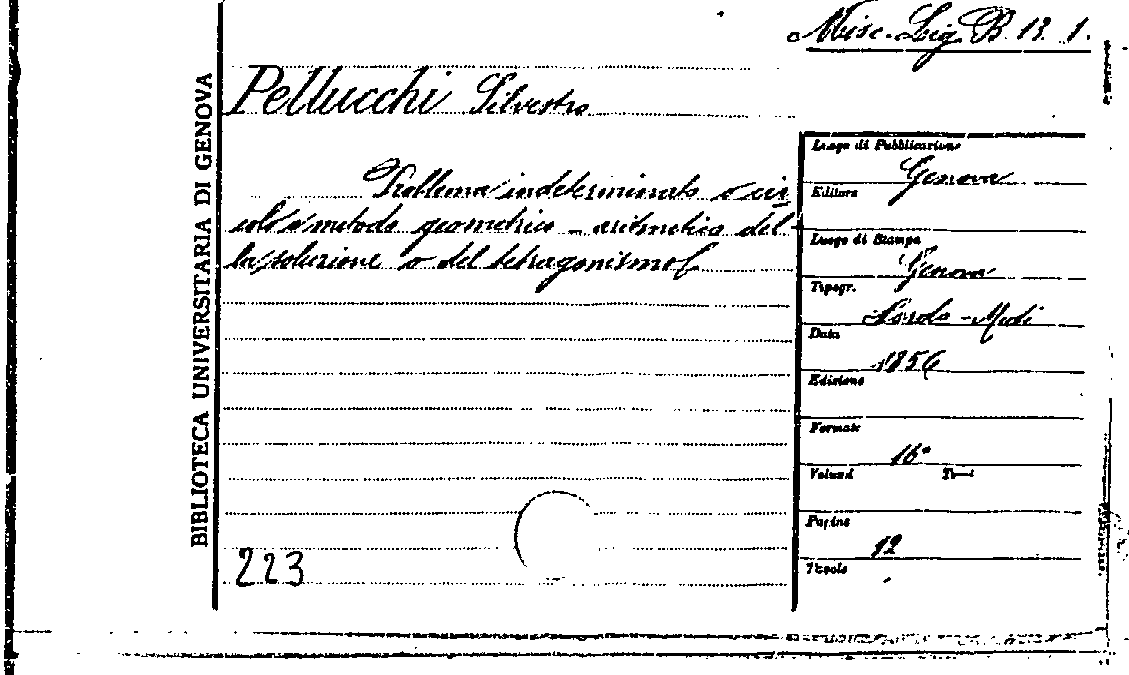 Misc. Lig. B. 13. 1.
BIBLIOTECA UNIVERSITARIA DI GENOVA
Pellucchi Silvestro
Problema indeterminato o cir
colo o metodo geometrico - aritmetico del
la soluzione o del tetragonismo
223
Luogo di Pubblicazione
Genova
Editore
Luogo di Stampa
Genova
Tipogr.
Data
1856
Edizione
Formato
16°
Volumi
Pagine
12
Tavole